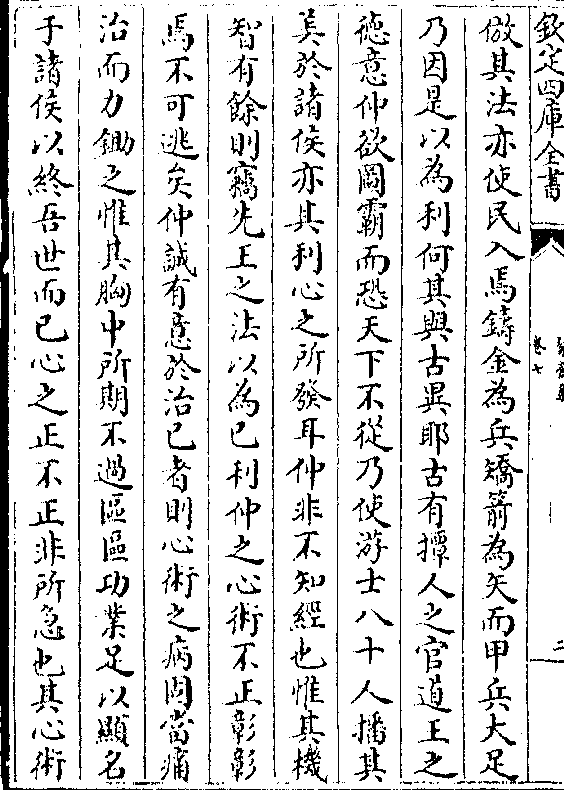 欽定四庫全書
卷七
二
倣其法亦使民入馬鑄金為兵矯箭為矢而甲兵大足
乃因是以為利何其與古異耶古有撢人之官道王之
德意仲欲圖霸而恐天下不從乃使游士八十人播其
美於諸侯亦其利心之所發耳仲非不知經也惟其機
智有餘則竊先王之法以為已利仲之心術不正彰彰
焉不可逃矣仲誠有意於治已者則心術之病固當痛
治而力鋤之惟其胸中所期不過區區功業足以顯名
于諸侯以終吾世而已心之正不正非所急也其心術